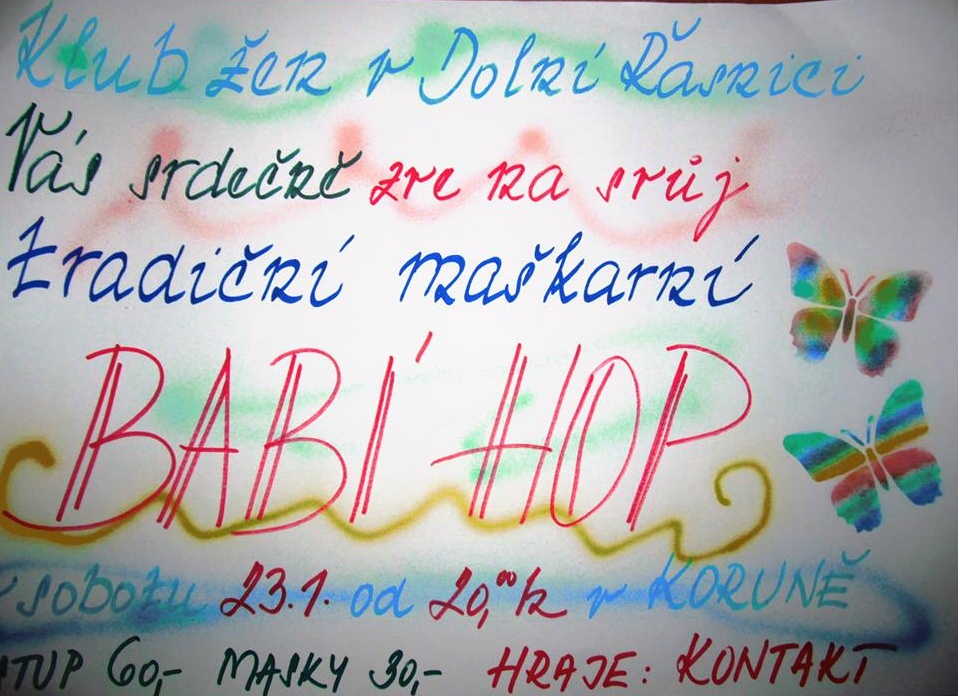 Klub žen v Dolní Řasnici
Vás srdečně zve na svůj
tradiční maškarní
BABÍ HOP
sobotu 23.1. od 20,ºº h v KORUNĚ
TUP 60,- MASKY 30,- HRAJE: KONTAKT